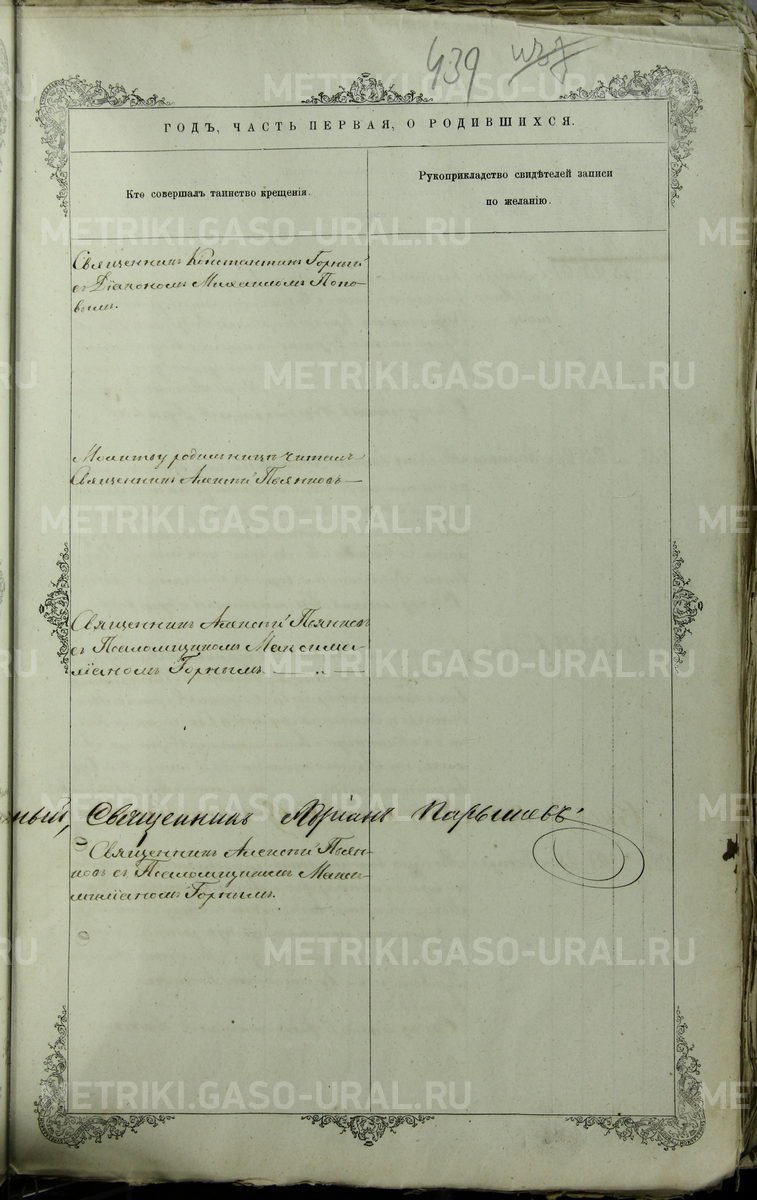 439
ГОДЪ, ЧАСТЬ ПЕРВАЯ, О РОДИВШИХСЯ.
Кто совершалъ таинство крещенія.
Рукоприкладство свидѣтелей записи
по желанію.
Священникъ Константинъ Горный
съ Діакономъ Михаиломъ Попо-
вымъ.
Молитву родильницѣ читалъ
Священникъ Алексѣй Пьянковъ
Священникъ Алексѣй Пьянковъ
съ Псаломщикомъ Максими-
ліаномъ Горнымъ
ный, Священникъ Адріанъ Парышевъ
Священникъ Алексѣй Пьян-
ковъ съ Псаломщикомъ Макси-
миліаномъ Горнымъ.
METRIKI.GASO-URAL.RU